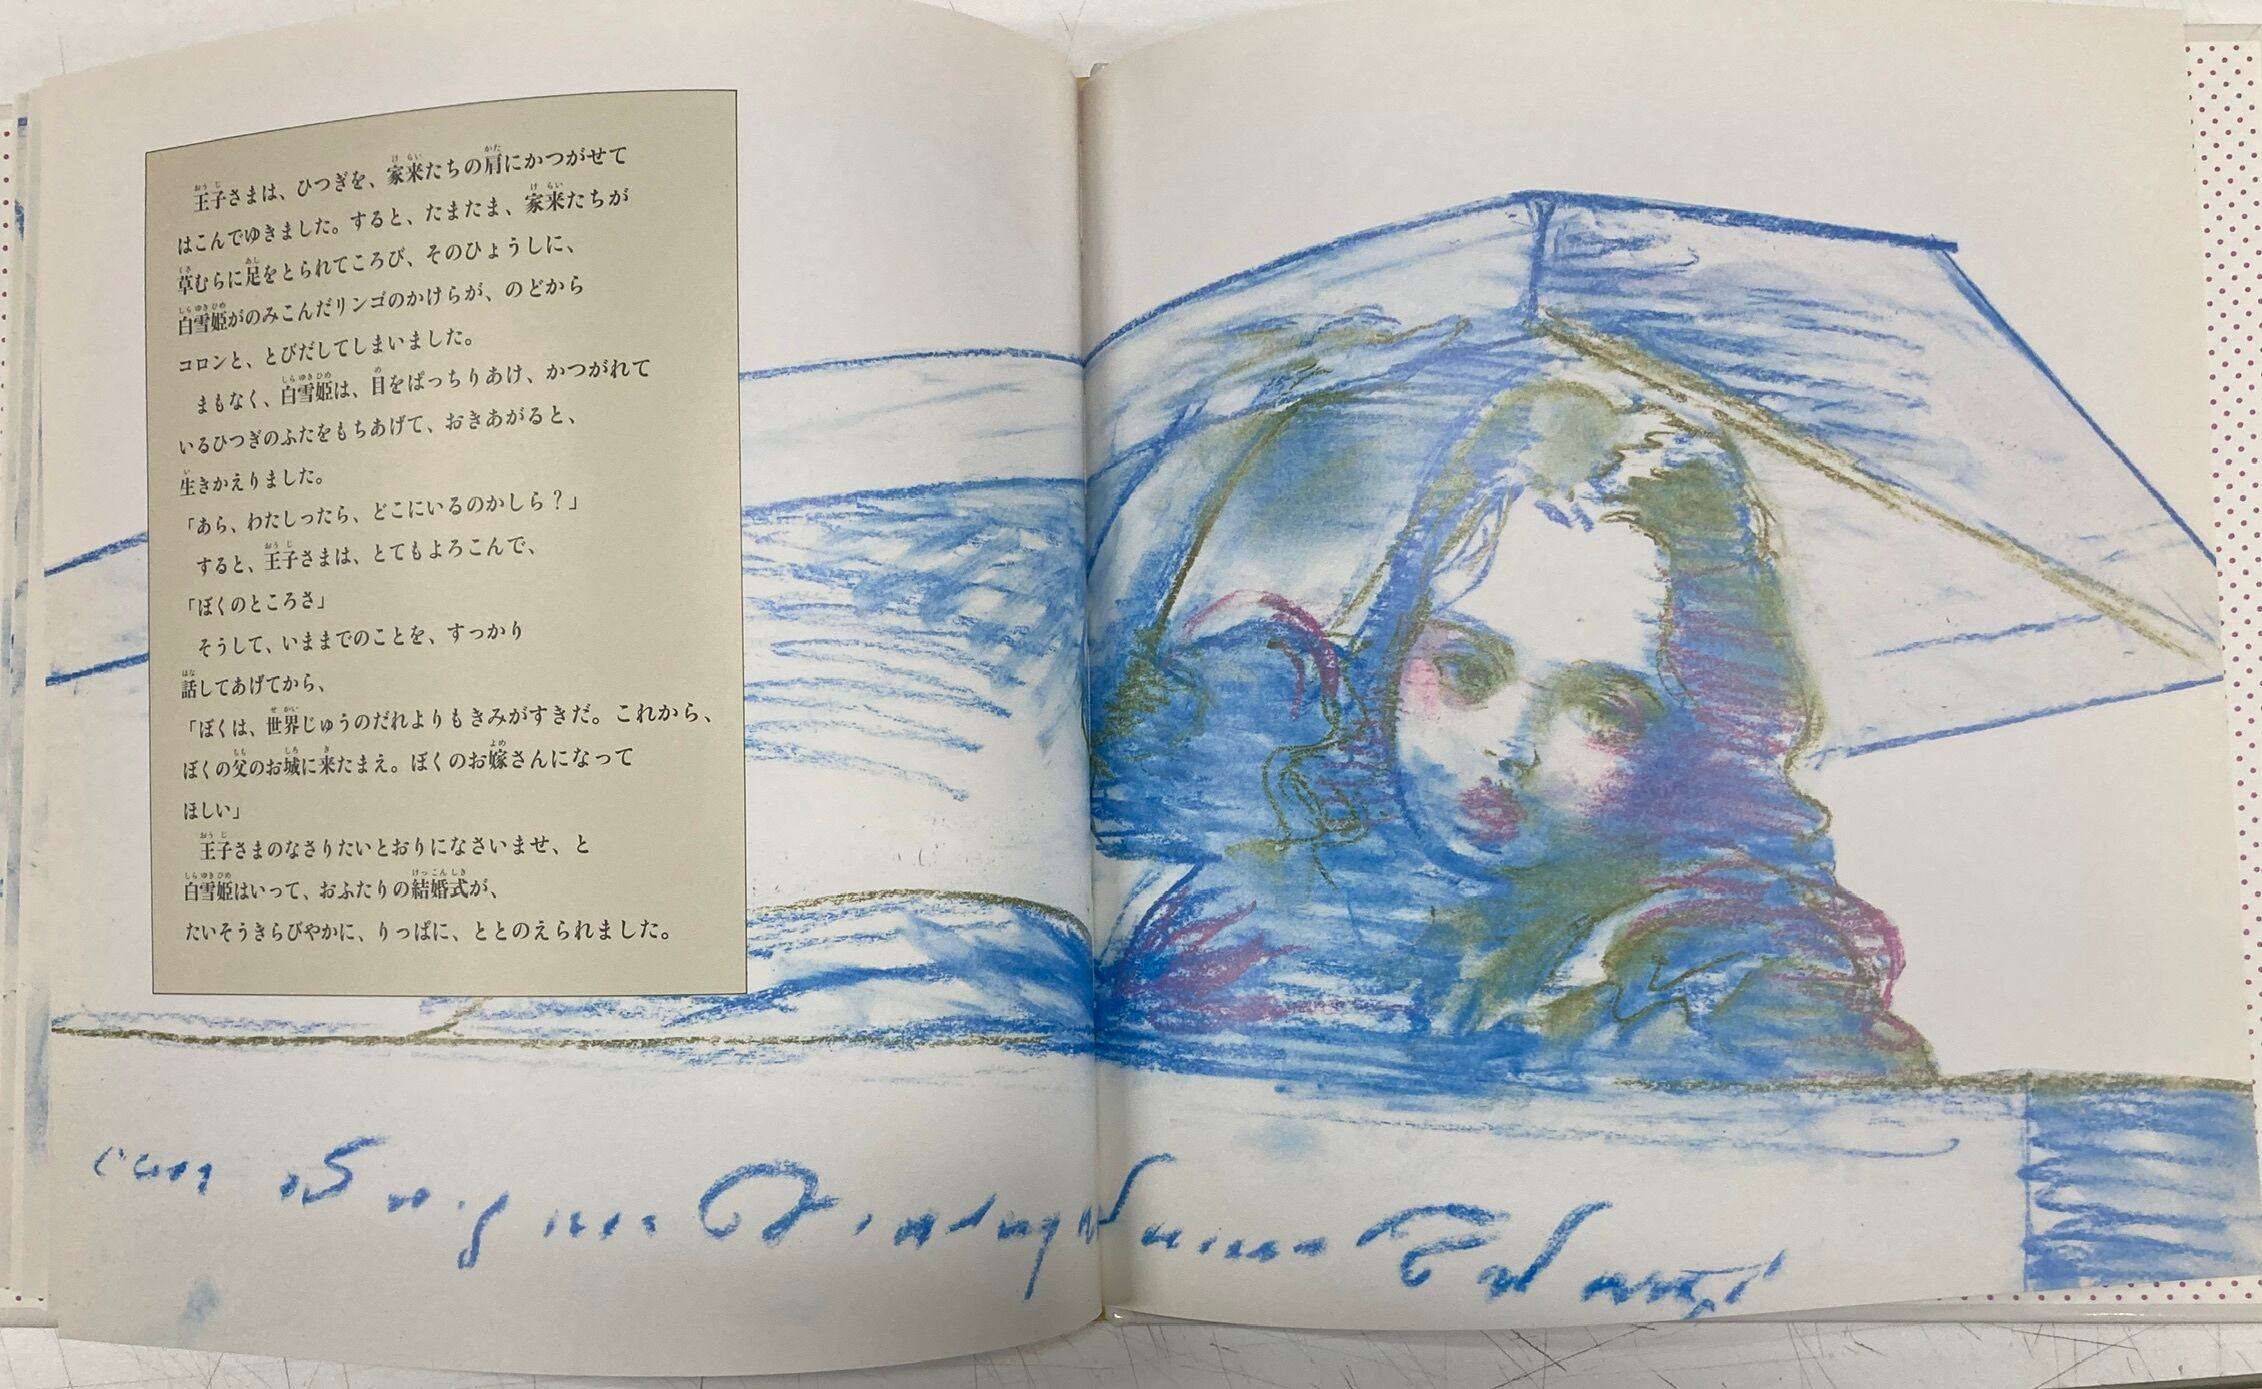 王子さまは、ひつぎを、家来たちの肩にかつがせて
はこんでゆきました。すると、たまたま、家来たちが
草むらに足をとられてころび、そのひょうしに、
白雪姫がのみこんだリンゴのかけらが、のどから
コロンと、とびだしてしまいました。
まもなく、白雪姫は、目をぱっちりあけ、かつがれて
いるひつぎのふたをもちあげて、おきあがると、
生きかえりました。
「あら、わたしったら、どこにいるのかしら？」
すると、王子さまは、とてもよろこんで、
「ぼくのところさ」
そうして、いままでのことを、すっかり
話してあげてから、
「ぼくは、世界じゅうのだれよりもきみがすきだ。これから、
ぼくの父のお城に来たまえ。ぼくのお嫁さんになって
ほしい」
王子さまのなさりたいとおりになさいませ、と
白雪姫はいって、おふたりの結婚式が、
たいそうきらびやかに、りっぱに、ととのえられました。